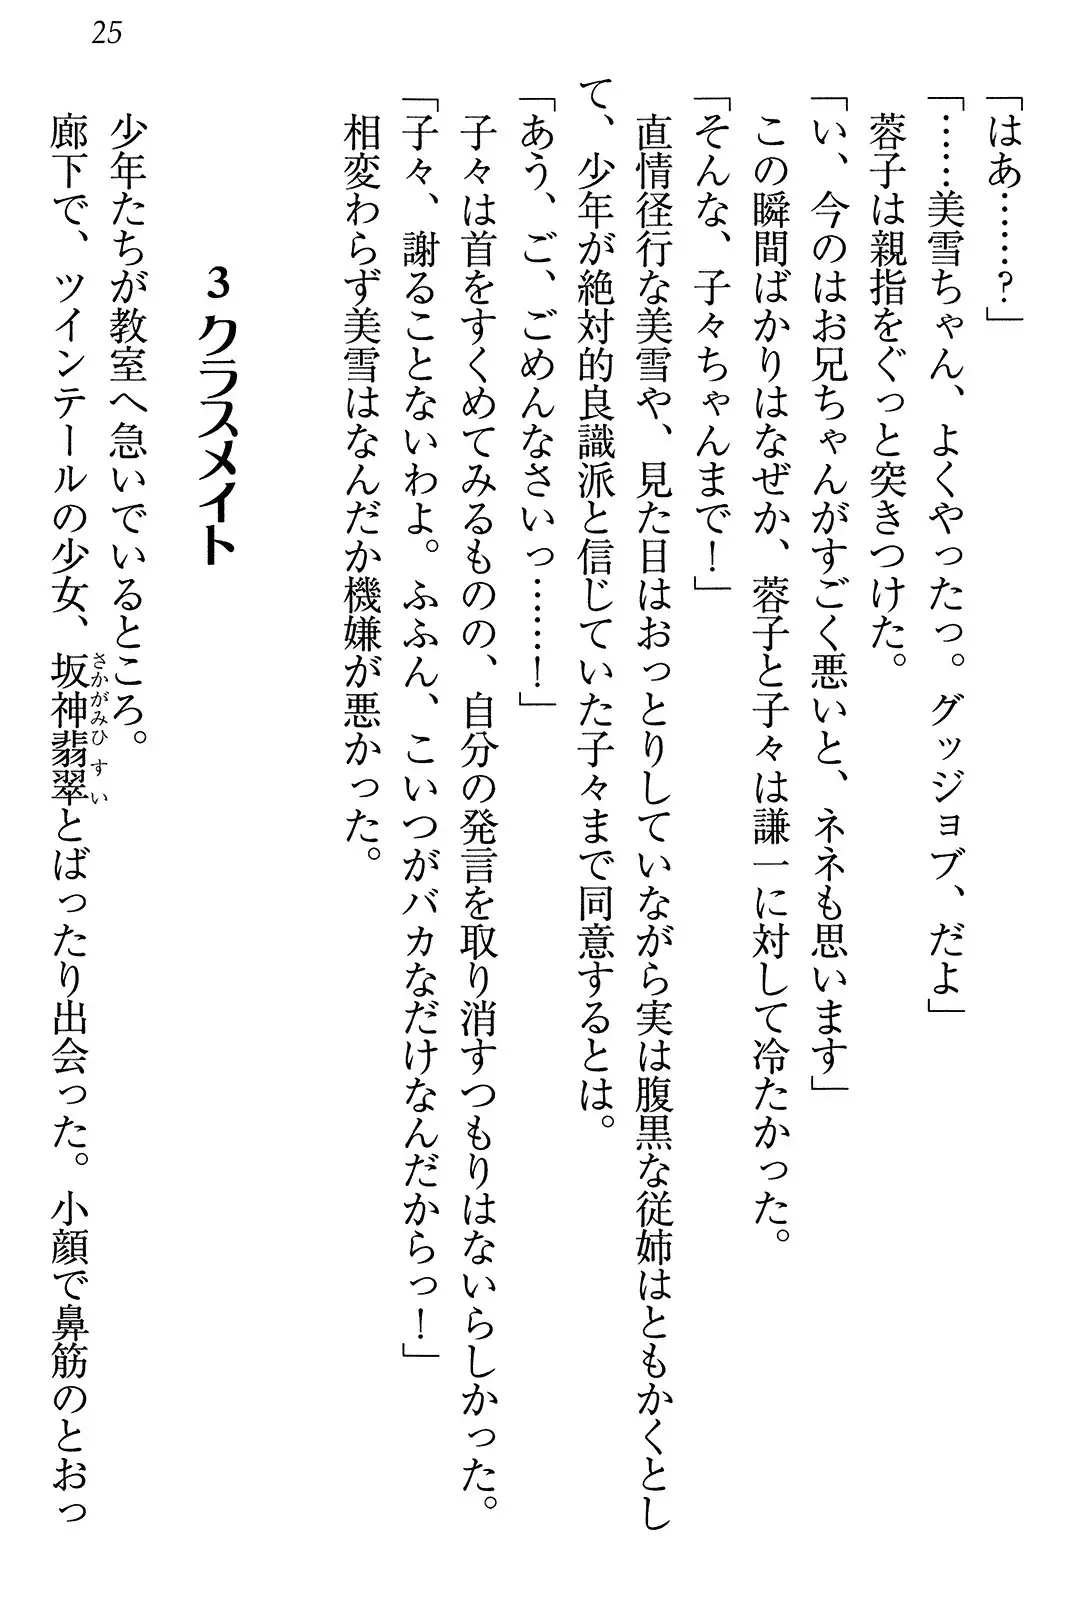 25
「はあ……?」
「……美雪ちゃん、よくやったっ。グッジョブ、だよ」
蓉子は親指をぐっと突きつけた。
「い、今のはお兄ちゃんがすごく悪いと、ネネも思います」
この瞬間ばかりはなぜか、蓉子と子々は謙一に対して冷たかった。
「そんな、子々ちゃんまで!」
直情径行な美雪や、見た目はおっとりしていながら実は腹黒な従姉はともかくとし
て、少年が絶対的良識派と信じていた子々まで同意するとは。
「あう、ご、ごめんなさいっ……!」
子々は首をすくめてみるものの、自分の発言を取り消すつもりはないらしかった。
「子々、謝ることないわよ。ふふん、こいつがバカなだけなんだからっ!」
相変わらず美雪はなんだか機嫌が悪かった。
3 クラスメイト
少年たちが教室へ急いでいるところ。
廊下で、ツインテールの少女、坂神翡翠とばったり出会った。小顔で鼻筋のとおっ
さかがみひすい